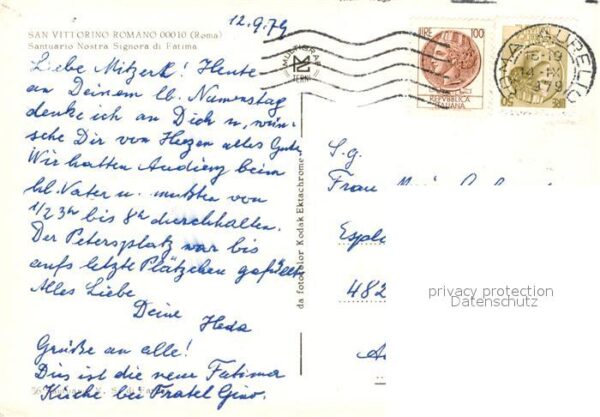 12.9.79
SAN VITTORINO ROMANO 00010 (Roma)
Santuario Nostra Signora di Fatima
Liebe Mitzerl! Heute
an Deinem lb. Namenstag
denke ich an Dich u. wün-
sche Dir von Herzen alles Gute.
Wir hatten Audienz beim
hl. Vater u. mußten von
1/2 3h bis 8h durchhalten.
Der Petersplatz war bis
aufs letzte Plätzchen gefüllt.
Alles Liebe
Deine Heda
Grüße an alle!
Dies ist die neue Fatima
Kirche bei Fratel Gino.
MULTIGRAF
TERNI
da fotocolor Kodak Ektachrome
LIRE 100
REPUBBLICA
ITALIANA
50
ROMA
S.g.
Frau
Espl
482
privacy protection
Datenschutz